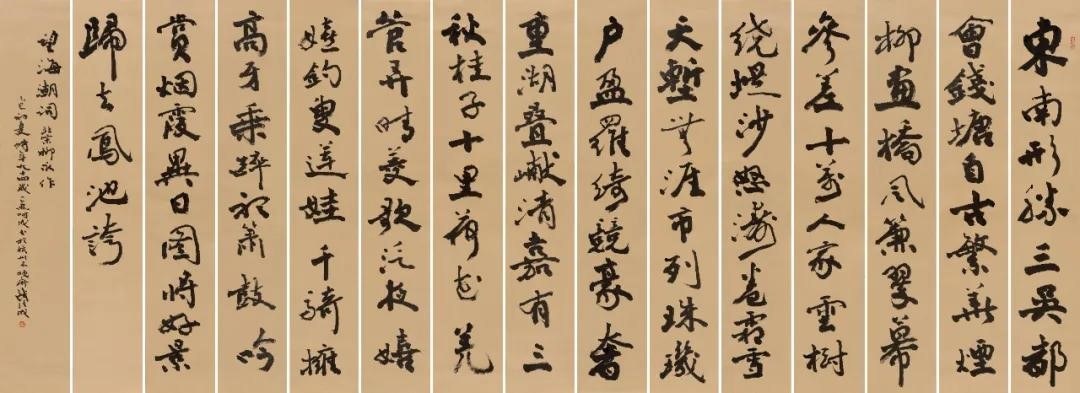 東南形勝三吳都
會錢塘自古繁華煙
柳畫橋風簾翠幕
參差十萬人家雲樹
繞堤沙怒濤卷霜雪
天塹無涯市列珠璣
户盈羅綺競豪奢
重湖叠巘清嘉有三
秋桂子十里荷花羌
管弄晴菱歌泛夜嬉
嬉釣叟蓮娃千騎擁
高牙乘醉聽簫鼓吟
賞烟霞異日圖將好景
歸去鳳池誇
望海潮词 柳永作
乙巳初夏時年九十四歲